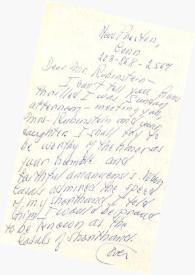 New Preston,
Conn
203-868-2507
Dear Mr. Rubinstein -
I can't tell you how
thrilled I was Sunday
afternoon - meeting you,
Mrs. Rubinstein and your
daughter. I shall try to
be worthy of the honor as
your humble and
faithful amanuensis. When
Casals admired the speed
of my shorthand I told
him I would be proud
to be known as the
Casals of Shorthand.
(over)